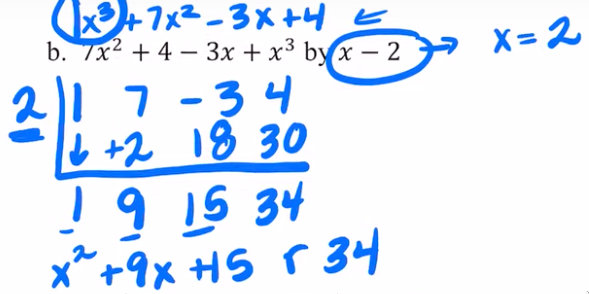 1x³ + 7x² - 3x + 4 ←
b. 7x² + 4 − 3x + x³ by x − 2 → x = 2
2 | 1 7 - 3 4
↓ +2 18 30
1 9 15 34
x² + 9x + 15 r 34